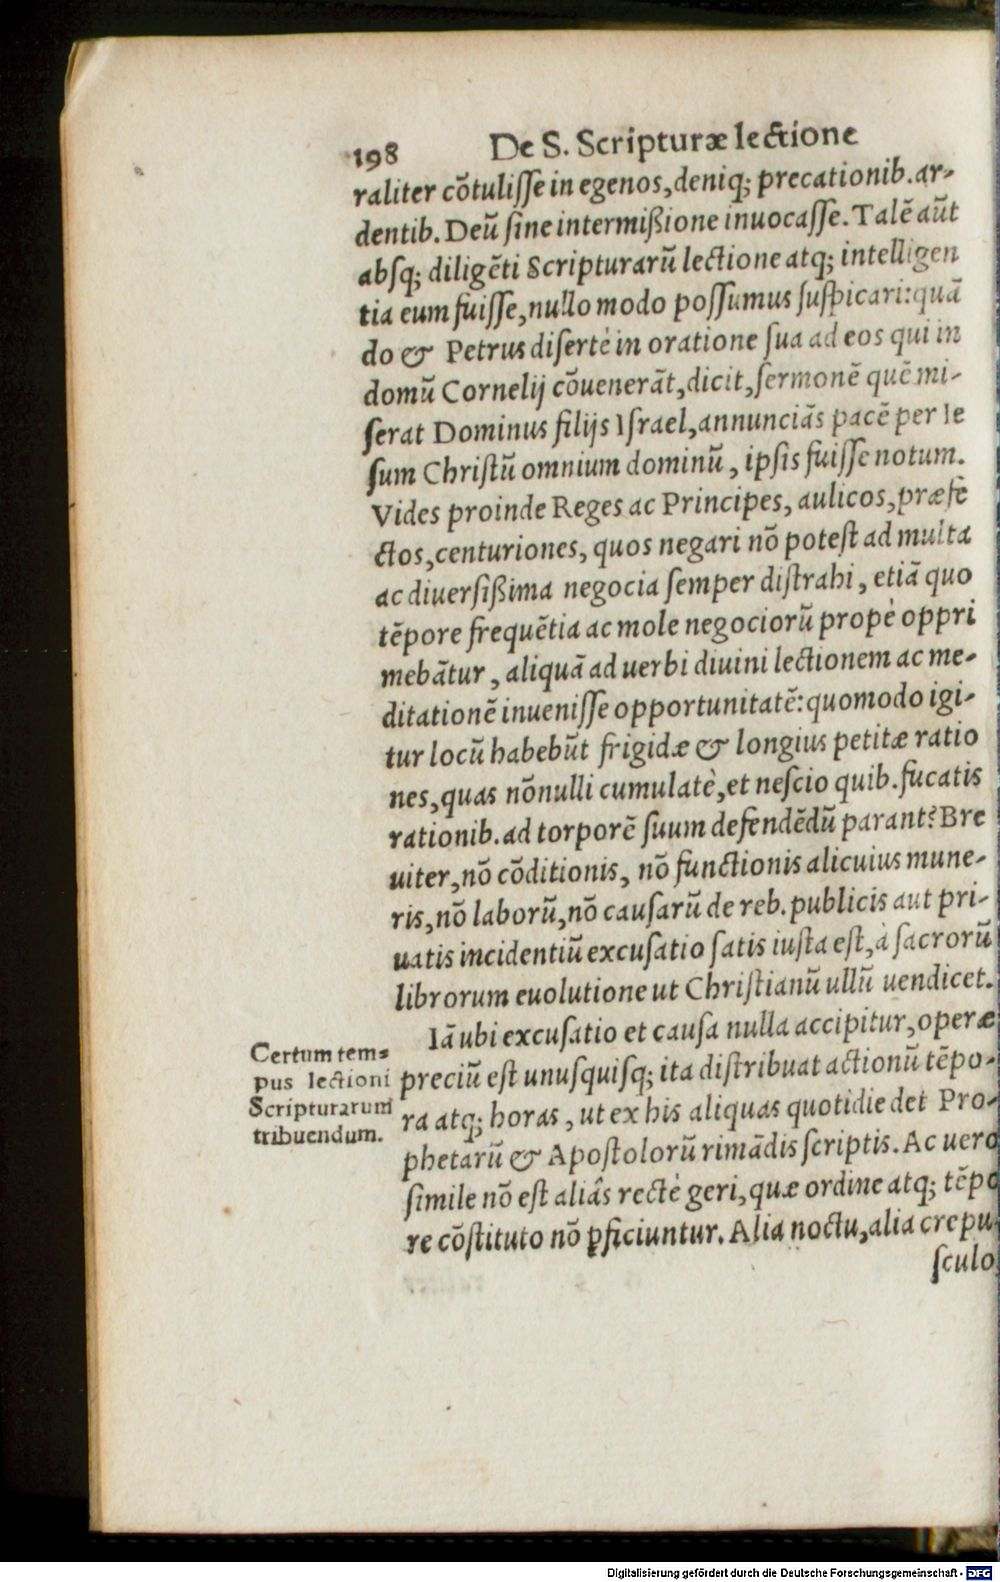 198 De S. Scripturæ lectione
raliter cōtuliſſe in egenos, deniq; precationib. ar-
dentib. Deū ſine intermißione inuocaſſe. Talē aūt
abſq; diligēti Scripturarū lectione atq; intelligen
tia eum fuiſſe, nullo modo poſſumus ſuſpicari: quā
do & Petrus diſertè in oratione ſua ad eos qui in
domū Cornelij cōuenerāt, dicit, ſermonē quē mi-
ſerat Dominus filijs Iſrael, annunciās pacē per Ie
ſum Chriſtū omnium dominū, ipſis fuiſſe notum.
Vides proinde Reges ac Principes, aulicos, præfe
ctos, centuriones, quos negari nō poteſt ad multa
ac diuerſißima negocia ſemper diſtrahi, etiā quo
tēpore frequētia ac mole negociorū propè oppri
mebātur, aliquā ad uerbi diuini lectionem ac me-
ditationē inueniſſe opportunitatē: quomodo igi-
tur locū habebūt frigidæ & longius petitæ ratio
nes, quas nōnulli cumulatè, et neſcio quib. fucatis
rationib. ad torporē ſuum defendēdū parant? Bre
uiter, nō cōditionis, nō functionis alicuius mune-
ris, nō laborū, nō cauſarū de reb. publicis aut pri-
uatis incidentiū excuſatio ſatis iuſta eſt, à ſacrorū
librorum euolutione ut Chriſtianū ullū uendicet.
Iā ubi excuſatio et cauſa nulla accipitur, operæ
preciū eſt unuſquiſq; ita diſtribuat actionū tēpo-
ra atq; horas, ut ex his aliquas quotidie det Pro-
phetarū & Apoſtolorū rimādis ſcriptis. Ac uero
ſimile nō eſt aliâs rectè geri, quæ ordine atq; tēpo
re cōſtituto nō ꝑficiuntur. Alia noctu, alia crepu-
ſculo
Certum tem-
pus lectioni
Scripturarum
tribuendum.
Digitalisierung gefördert durch die Deutsche Forschungsgemeinschaft - DFG